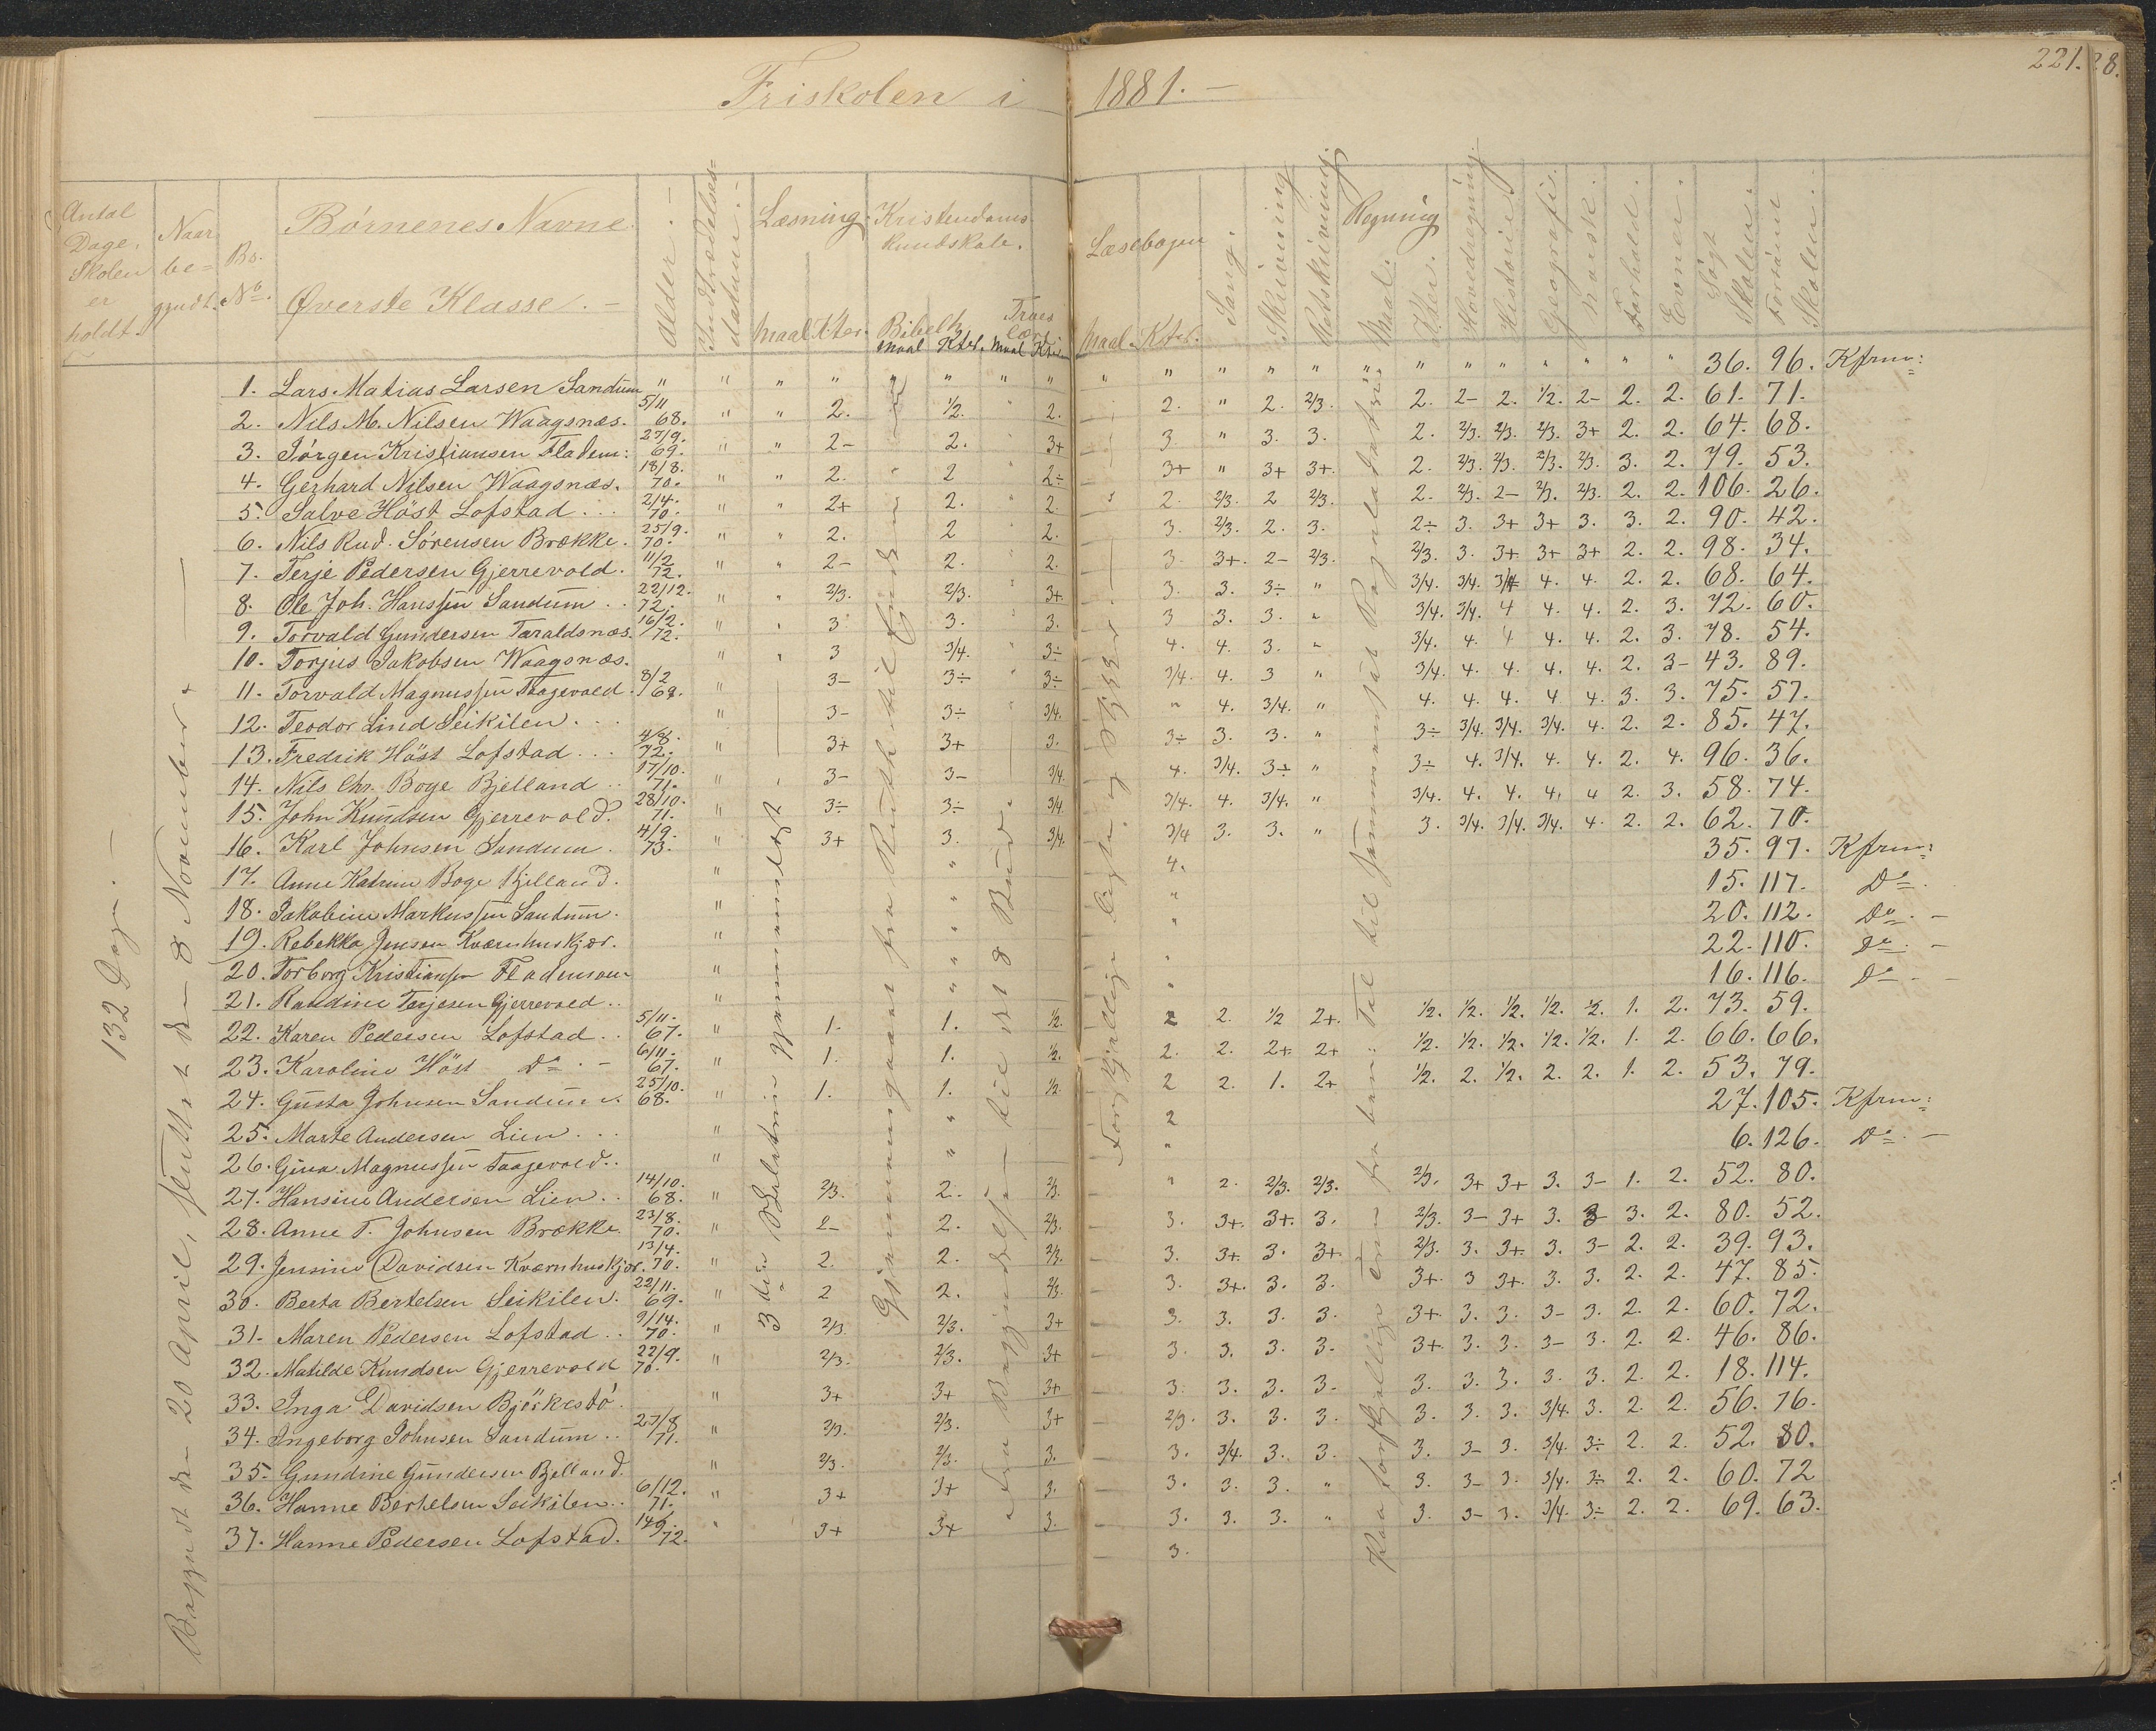 Friskolen i 1881. —
221.
28.
Antal Dage, Skolen er holdt.
Naar be=gyndt.
Bo. No.
Børnenes Navne.
Øverste Klasse. —
Alder. —
Indtrædelses=datum. —
Læsning.
Maal Kter.
Kristendoms-kundskab.
Bibelh.
Maal Kter.
Troes lære
Maal Kter
Læsebogen.
Maal. Kter.
Sang.
Skrivning
Retskrivning.
Regning
Maal.
Kter.
Hovedregning.
Historie.
Geografi.
Norsk.
Forhold.
Evner.
Søgt Skolen.
Forsømt Skolen.
132 Dage. —
Begyndt den 20 April, sluttet den 8 November. —
Gjennemgaaet fra Ruth til Enden
1. Lars Matias Larsen Sandum " " " " " " " " " " " " " " " " " " " " " 36. 96. Kfrm:
2. Nils M. Nilsen Waagsnæs. 5/11 68. " " 2. 1/2. " 2. 2. " 2. 2/3. 2. 2- 2. 1/2. 2- 2. 2. 61. 71.
3. Jørgen Kristiansen Fladem: 27/9. 69. " " 2- 2. " 3+ 3. " 3. 3. 2. 2/3. 2/3. 2/3. 3+ 2. 2. 64. 68.
4. Gerhard Nilsen Waagsnæs. 18/8. 70. " " 2. 2 " 2÷ 3+ " 3+ 3+. 2. 2/3. 2/3. 2/3. 2/3. 3. 2. 79. 53.
5. Salve Høst Lofstad . . . 2/4. 70. " " 2+ 2. " 2. 2. 2/3. 2 2/3. 2. 2/3. 2- 2/3. 2/3. 2. 2. 106. 26.
6. Nils Rud. Sørensen Brække. 25/9. 70. " " 2. 2 " 2. 3. 2/3. 2. 3. 2÷ 3. 3+ 3+ 3. 3. 2. 90. 42.
7. Terje Pedersen Gjerrevold. 11/2 72. " " 2- 2. " 2. 3. 3+. 2- 2/3. 2/3. 3. 3+ 3+ 3+ 2. 2. 98. 34.
8. Ole Joh. Hanssen Sandum . . 22/12. 72. " " 2/3. 2/3. " 3+ 3. 3. 3÷ " 3/4. 3/4. 3/4 4. 4. 2. 2. 68. 64.
9. Torvald Gundersen Taraldsnæs. 16/2. 72. " " 3 3. " 3. 3 3. 3. " 3/4. 3/4. 4 4. 4. 2. 3. 72. 60.
10. Torjus Jakobsen Waagsnæs. " " 3 3/4. " 3÷ 4. 4. 3. " 3/4. 4. 4 4. 4. 2. 3. 78. 54.
11. Torvald Magnussen Taagevold. 8/2 68. " 3- 3÷ " 3÷ 3/4. 4. 3 " 3/4. 4. 4. 4. 4. 2. 3- 43. 89.
12. Teodor Lind Seikilen. . . " 3- 3÷ " 3/4. " 4. 3/4. " 4. 4. 4. 4 4. 3. 3. 75. 57.
13. Fredrik Høst Lofstad . . . 4/8. 72. " 3+ 3+ 3. 3÷ 3. 3. " 3÷ 3/4. 3/4. 3/4. 4. 2. 2. 85. 47.
14. Nils Chr. Boge Bjelland . . 17/10. 71. " " 3- 3- 3/4. 4. 3/4. 3÷ " 3÷ 4. 3/4. 4. 4. 2. 4. 96. 36.
15. John Knudsen Gjerrevold. 28/10. 71. " 3÷ 3÷ 3/4 3/4. 4. 3/4. " 3/4. 4. 4. 4. 4 2. 3. 58. 74.
16. Karl Johnsen Sandum . 4/9. 73. " 3+ 3. 3/4. 3/4 3. 3. " 3. 3/4. 3/4. 3/4. 4. 2. 2. 62. 70.
17. Anne Katrine Boge Bjelland. " 4. 35. 97. Kfrm:
18. Jakobine Markussen Sandum. " " " 15. 117. Do.
19. Rebekka Jensen Kværnhuskjær. " " " 20. 112. Do. —
20. Torborg Kristiansen Fladmoen " " " 22. 110. Do. —
21. Randine Terjesen Gjerrevold . . " " " 16. 116. Do —
22. Karen Pedersen Lofstad . . 5/11. 67. " 1. 1. 1/2. 2 2. 1/2 2+. 1/2. 1/2. 1/2. 1/2. 1/2. 1. 2. 73. 59.
23. Karoline Høst Do. — 6/11. 67. " 1. 1. 1/2. 2. 2. 2+ 2+ 1/2. 1/2. 1/2. 1/2. 1/2. 1. 2. 66. 66.
24. Gusta Johnsen Sandum. 25/10. 68. " 1. 1. 1/2. 2 2. 1. 2+ 1/2. 2. 1/2. 2. 2. 1. 2. 53. 79.
25. Marte Andersen Lien . . . " " 2 27. 105. Kfrm:
26. Gina Magnussen Taagevold. . " " " 6. 126. Do. —
27. Hansine Andersen Lien . . 14/10. 68. " 2/3. 2. 2/3. " 2. 2/3. 2/3. 2/3. 3+ 3+ 3. 3- 1. 2. 52. 80.
28. Anne T. Johnsen Brække. 23/8. 70. " 2- 2. 2/3. 3. 3+. 3+. 3. 2/3. 3- 3+ 3. 3 3. 2. 80. 52.
29. Jensine Davidsen Kværnhuskjær. 13/4. 70. " 2. 2. 2/3. 3. 3+. 3. 3+ 2/3. 3. 3+. 3. 3- 2. 2. 39. 93.
30. Berta Bertelsen Seikilen. 22/11. 69. " 2 2. 2/3. 3. 3+. 3. 3. 3+. 3 3+. 3. 3. 2. 2. 47. 85.
31. Maren Pedersen Lofstad . . 9/14. 70. " 2/3 2/3. 3+ 3. 3. 3. 3. 3+. 3. 3. 3- 3. 2. 2. 60. 72.
32. Matilde Knudsen Gjerrevold 22/9. 70. " 2/3. 2/3. 3+ 3. 3. 3. 3. 3+. 3. 3. 3- 3. 2. 2. 46. 86.
33. Inga Davidsen Bjørkestø. " 3+ 3+ 3+ 3. 3. 3. 3- 3. 3. 3. 3. 3. 2. 2. 18. 114.
34. Ingeborg Johnsen Sandum . . 27/8 71. " 2/3. 2/3. 3+ 2/3. 3. 3. 3. 3. 3. 3. 3/4. 3. 2. 2. 56. 76.
35. Gundine Gundersen Bjelland. " 2/3. 2/3. 3. 3. 3/4. 3. 3. 3. 3- 3. 3/4. 3÷ 2. 2. 52. 80.
36. Hanne Bertelsen Seikilen. . 6/12. 71. " 3+ 3+ 3. 3. 3. 3. " 3. 3- 3. 3/4. 3÷ 2. 2. 60. 72
37. Hanne Pedersen Lofstad. 14/9. 72. " 3+ 3+ 3. 3. 3. 3. " 3. 3- 3. 3/4. 3÷ 2. 2. 69. 63.
3.